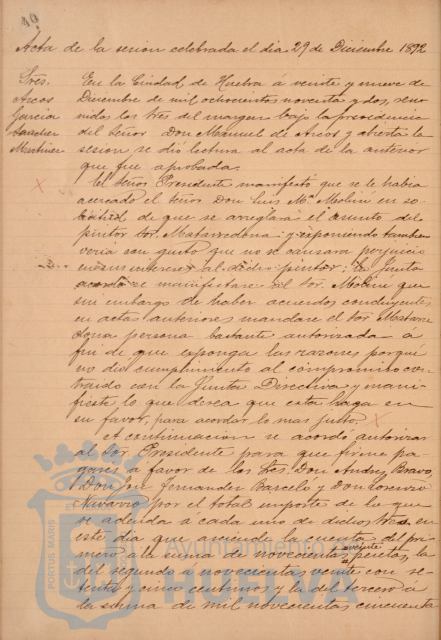 40
Acta de la sesion celebrada el dia 29 de Diciembre 1892
Sres.
Arcos
Garcia
Sanchez
Martinez
En la Ciudad de Huelva á veinte y nueve de
Diciembre de mil ochocientos noventa y dos, reu-
nidos los Sres del margen bajo la presidencia
del Señor Don Manuel de Arcos y abierta la
sesion se dió lectura al acta de la anterior
que fue aprobada.
El Señor Presidente manifestó que se le habia
acercado el Señor Don Luis Mª Molini en so-
licitud de que se arreglara el asunto del
pintor Sor. Matarredona y exponiendo tambien
veria con gusto que no se causara perjuicio
en sus intereses al dicho pintor; la Junta
acordó se manifestare al Sor. Molini que
sin embargo de haber acuerdos concluyentes
en actas anteriores mandare el Sor Matarre
dona persona bastante autorizada á
fin de que exponga las razones porqué
no dió cumplimiento al compromiso con-
traido con la Junta Directiva y mani-
fieste lo que desea que esta haga en
su favor, para acordar lo mas justo.
A continuacion se acordó autorizar
al Sor Presidente para que firme pa-
garés á favor de los Sres. Don Andres Bravo,
Don José Fernandez Barcelo y Don Lorenzo
Navarro por el total importe de lo que
se adeuda á cada uno de dichos Sres. en
este dia que asciende la cuenta del pri-
mero á la suma de novecientas veinte pesetas, la
del segundo á novecientas veinte con se-
tenta y cinco centimos y la del tercero á
la suma de mil novecientas cincuenta
PORTUS MARIS
Ayuntamiento de
HUELVA